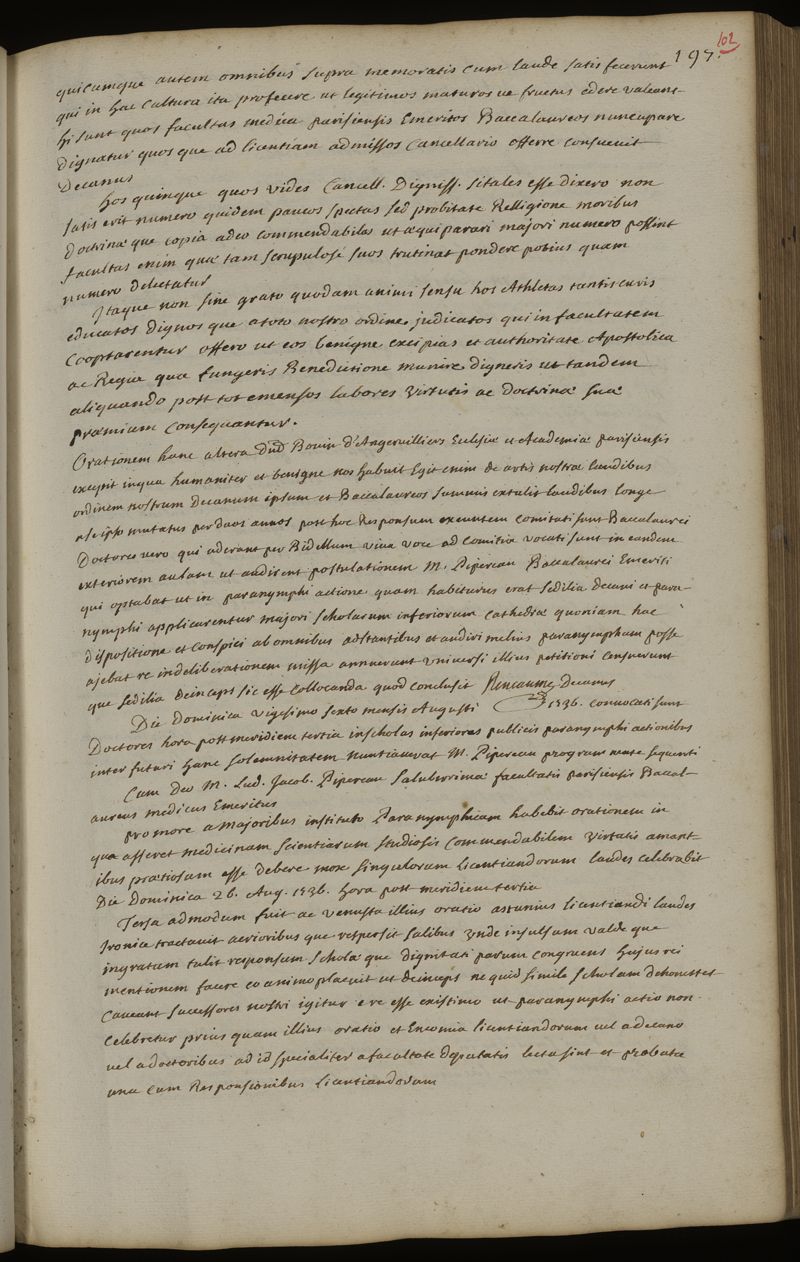 102
197.
quicumque autem omnibus supra memoratis cum laude satis fecerunt
qui in hac cultura ita profecere ut legitimos maturos ve fructus edere valeant
hi sunt quos facultas medica parisiensis Emeritos Baccalaureos nuncupare
dignatur quos que ad licentiam admissos Cancellario offerre consuevit
Decanus
hos quinque quos vides Cancell. Digniss. si tales esse dixero non
satis erit numero quidem paucos spectas sed probitate Relligione moribus
doctrinæ que copia adeo commendabiles ut æquiparari majori numero possint
facultas enim quæ tam scrupulose suos trutinat pondere potius quam
numero delectatur
Itaque non sine grato quodam animi sensu hos Athletas tantis curis
educatos dignos que a toto nostro ordine judicatos qui in facultatem
Cooptarentur offero ut eos benigne excipias et authoritate Apostolica
ac Regia qua fungeris Benedictione munire digneris ut tandem
aliquando post tot emensos labores virtutis ac doctrinæ suæ
præmium consequantur.
Orationem hanc altera Dnd Bouin D'Angervilliers Eclesiæ et Academiæ parisiensis
excepit in qua humaniter et benigne nos habuit Egit enim de artis nostræ laudibus
ordinem nostrum Decanum ipsum et Baccalaureos summis extulit laudibus longe
a se ipso mutatus per duos annos post hoc Responsum exeuntem comitati sunt Baccalaurei
Doctores vero qui aderant per Bidellum viva voce ad Comitia vocati sunt in eandem
exteriorem aulam ut audirent postulationem M. Pipereau Baccalaurei Emeriti
qui optabat ut in paranymphi actione quam habiturus erat sedilia decani et para-
nymphi applicarentur majori scholarum inferiorum cathedræ quoniam hac
dispositione et conspici ab omnibus adstantibus et audiri melius paranymphum posse
ajebat re in deliberationem missa annuerunt universi illius petitioni censuerunt
que sedilia deinceps sic esse collocanda quod conclusit Reneaume Decanus
Die Dominica vigesimo sexto mensis Augusti 1736. convocati sunt
Doctores hora post meridiem tertia in scholas inferiores publicis paranymphi actionibus
inter futuri hanc solemnitatem nuntiaverat M. Pipereau programmate sequenti
Cum Deo M. Lud. Jacob. Pipereau saluberrimæ facultatis parisiensis Baccal-
aureus medicus Emeritus
pro more a majoribus instituto Paranymphicam habebit orationem in
qua asseret medicinam scientiarum studiosis commendabilem virtutis amant-
ibus prætiosam esse debere mox singulorum licentiandorum laudes celebrabit
Die Dominica 26. Aug. 1736. hora post meridiem tertia
Tersa admodum fuit ac venusta illius oratio ast unius licentiandi laudes
Ironice tractavit acrioribus que respersit salibus unde insulsum valde que
ingratum tulit responsum scholæ que dignitati parum congruens hujus rei
mentionem facere eo animo placuit ut deinceps ne quid simile scholam dehonestet
caveant successores nostri igitur e re esse existimo ut paranymphi actio non
celebretur prius quam illius oratio et Encomia licentiandorum vel a decano
vel a doctoribus ad id specialiter a facultate deputatis lecta sint et probata
una cum Responsionibus licentiandorum